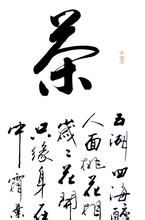 茶
五湖四海
人面桃花相
歲々花開
只緣身在
中霜葉